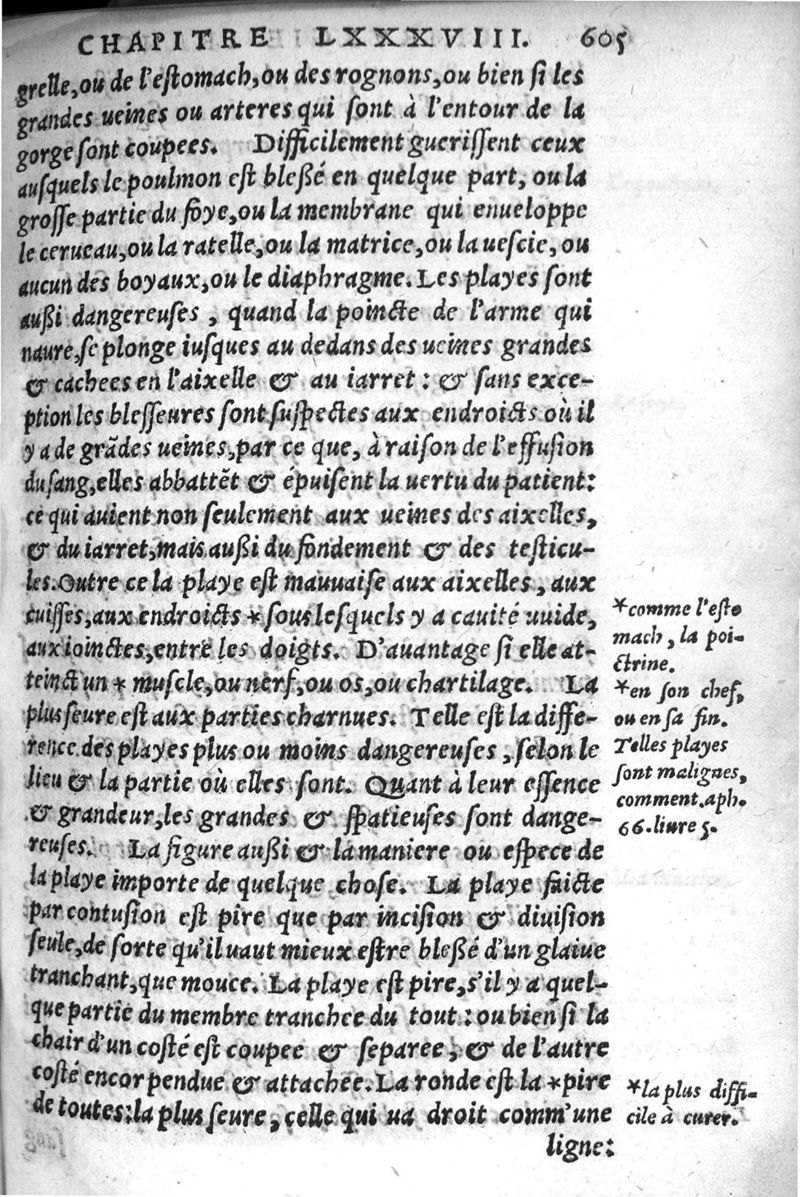 CHAPITRE LXXXVIII. 605
grelle, ou de l'estomach, ou des rognons, ou bien si les
grandes ueines ou arteres qui sont à l'entour de la
gorge sont coupees. Difficilement guerissent ceux
ausquels le poulmon est blessé en quelque part, ou la
grosse partie du foye, ou la membrane qui enueloppe
le cerueau, ou la ratelle, ou la matrice, ou la uescie, ou
aucun des boyaux, ou le diaphragme. Les playes sont
aussi dangereuses, quand la poincte de l'arme qui
naure, se plonge iusques au dedans des ueines grandes
& cachees en l'aixelle & au iarret: & sans exce-
ption les blesseures sont suspectes aux endroicts où il
y a de grādes ueines, par ce que, à raison de l'effusion
du sang, elles abbattēt & épuisent la uertu du patient:
ce qui auient non seulement aux ueines des aixelles,
& du iarret, mais aussi du fondement & des testicu-
les. Outre ce la playe est mauuaise aux aixelles, aux
cuisses, aux endroicts * sous lesquels y a cauité uuide,
aux ioinctes, entre les doigts. D'auantage si elle at-
teinct un * muscle, ou nerf, ou os, ou chartilage. La
plus seure est aux parties charnues. Telle est la diffe-
rence des playes plus ou moins dangereuses, selon le
lieu & la partie où elles sont. Quant à leur essence
& grandeur, les grandes & spatieuses sont dange-
reuses. La figure aussi & la maniere ou espece de
la playe importe de quelque chose. La playe faicte
par contusion est pire que par incision & diuision
seule, de sorte qu'il uaut mieux estre blessé d'un glaiue
tranchant, que mouce. La playe est pire, s'il y a quel-
que partie du membre tranchee du tout: ou bien si la
chair d'un costé est coupee & separee, & de l'autre
costé encor pendue & attachée. La ronde est la * pire
de toutes: la plus seure, celle qui ua droit comm'une
ligne:
* comme l'esto
mach, la poi-
ctrine.
* en son chef,
ou en sa fin.
Telles playes
sont malignes,
comment. aph.
66. liure 5.
* la plus diffi-
cile à curer.